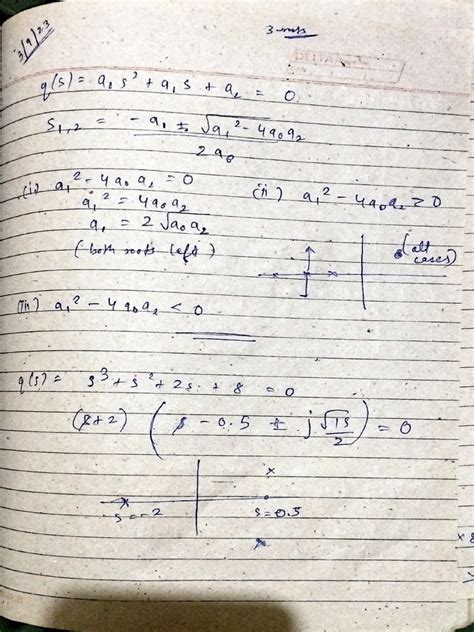 3/9/23
q(s) = a₁s² + a₁s + a₂ = 0
s₁,₂ = (-a₁ ± √(a₁² - 4a₀a₂)) / 2a₀
(i) a₁² - 4a₀a₂ = 0
a₁² = 4a₀a₂
a₁ = 2√a₀a₂
(both roots left)
(ii) a₁² - 4a₀a₂ > 0
(all cases)
(iii) a₁² - 4a₀a₂ < 0
q(s) = s³ + s² + 2s + 8 = 0
(s+2) (s - 0.5 ± j√15/2) = 0
s=-2
s=0.5